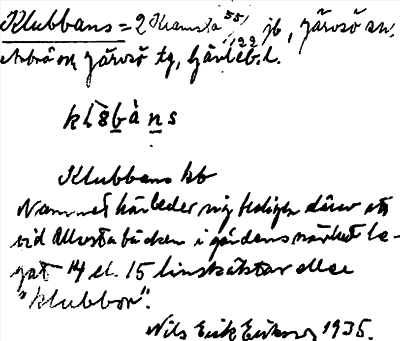 Klubbans = 2 Kramsta 55/122 jb, Järvsö sn,
Järvsö tg, Gävleb. l.
Klubbans hb
Namnet härleder sig tydligen därav att
vid Allsstabäcken i gårdens närhet le-
gat 14 el. 15 linskäktar eller
"klubbor".
Nils Erik Eriksson 1935.